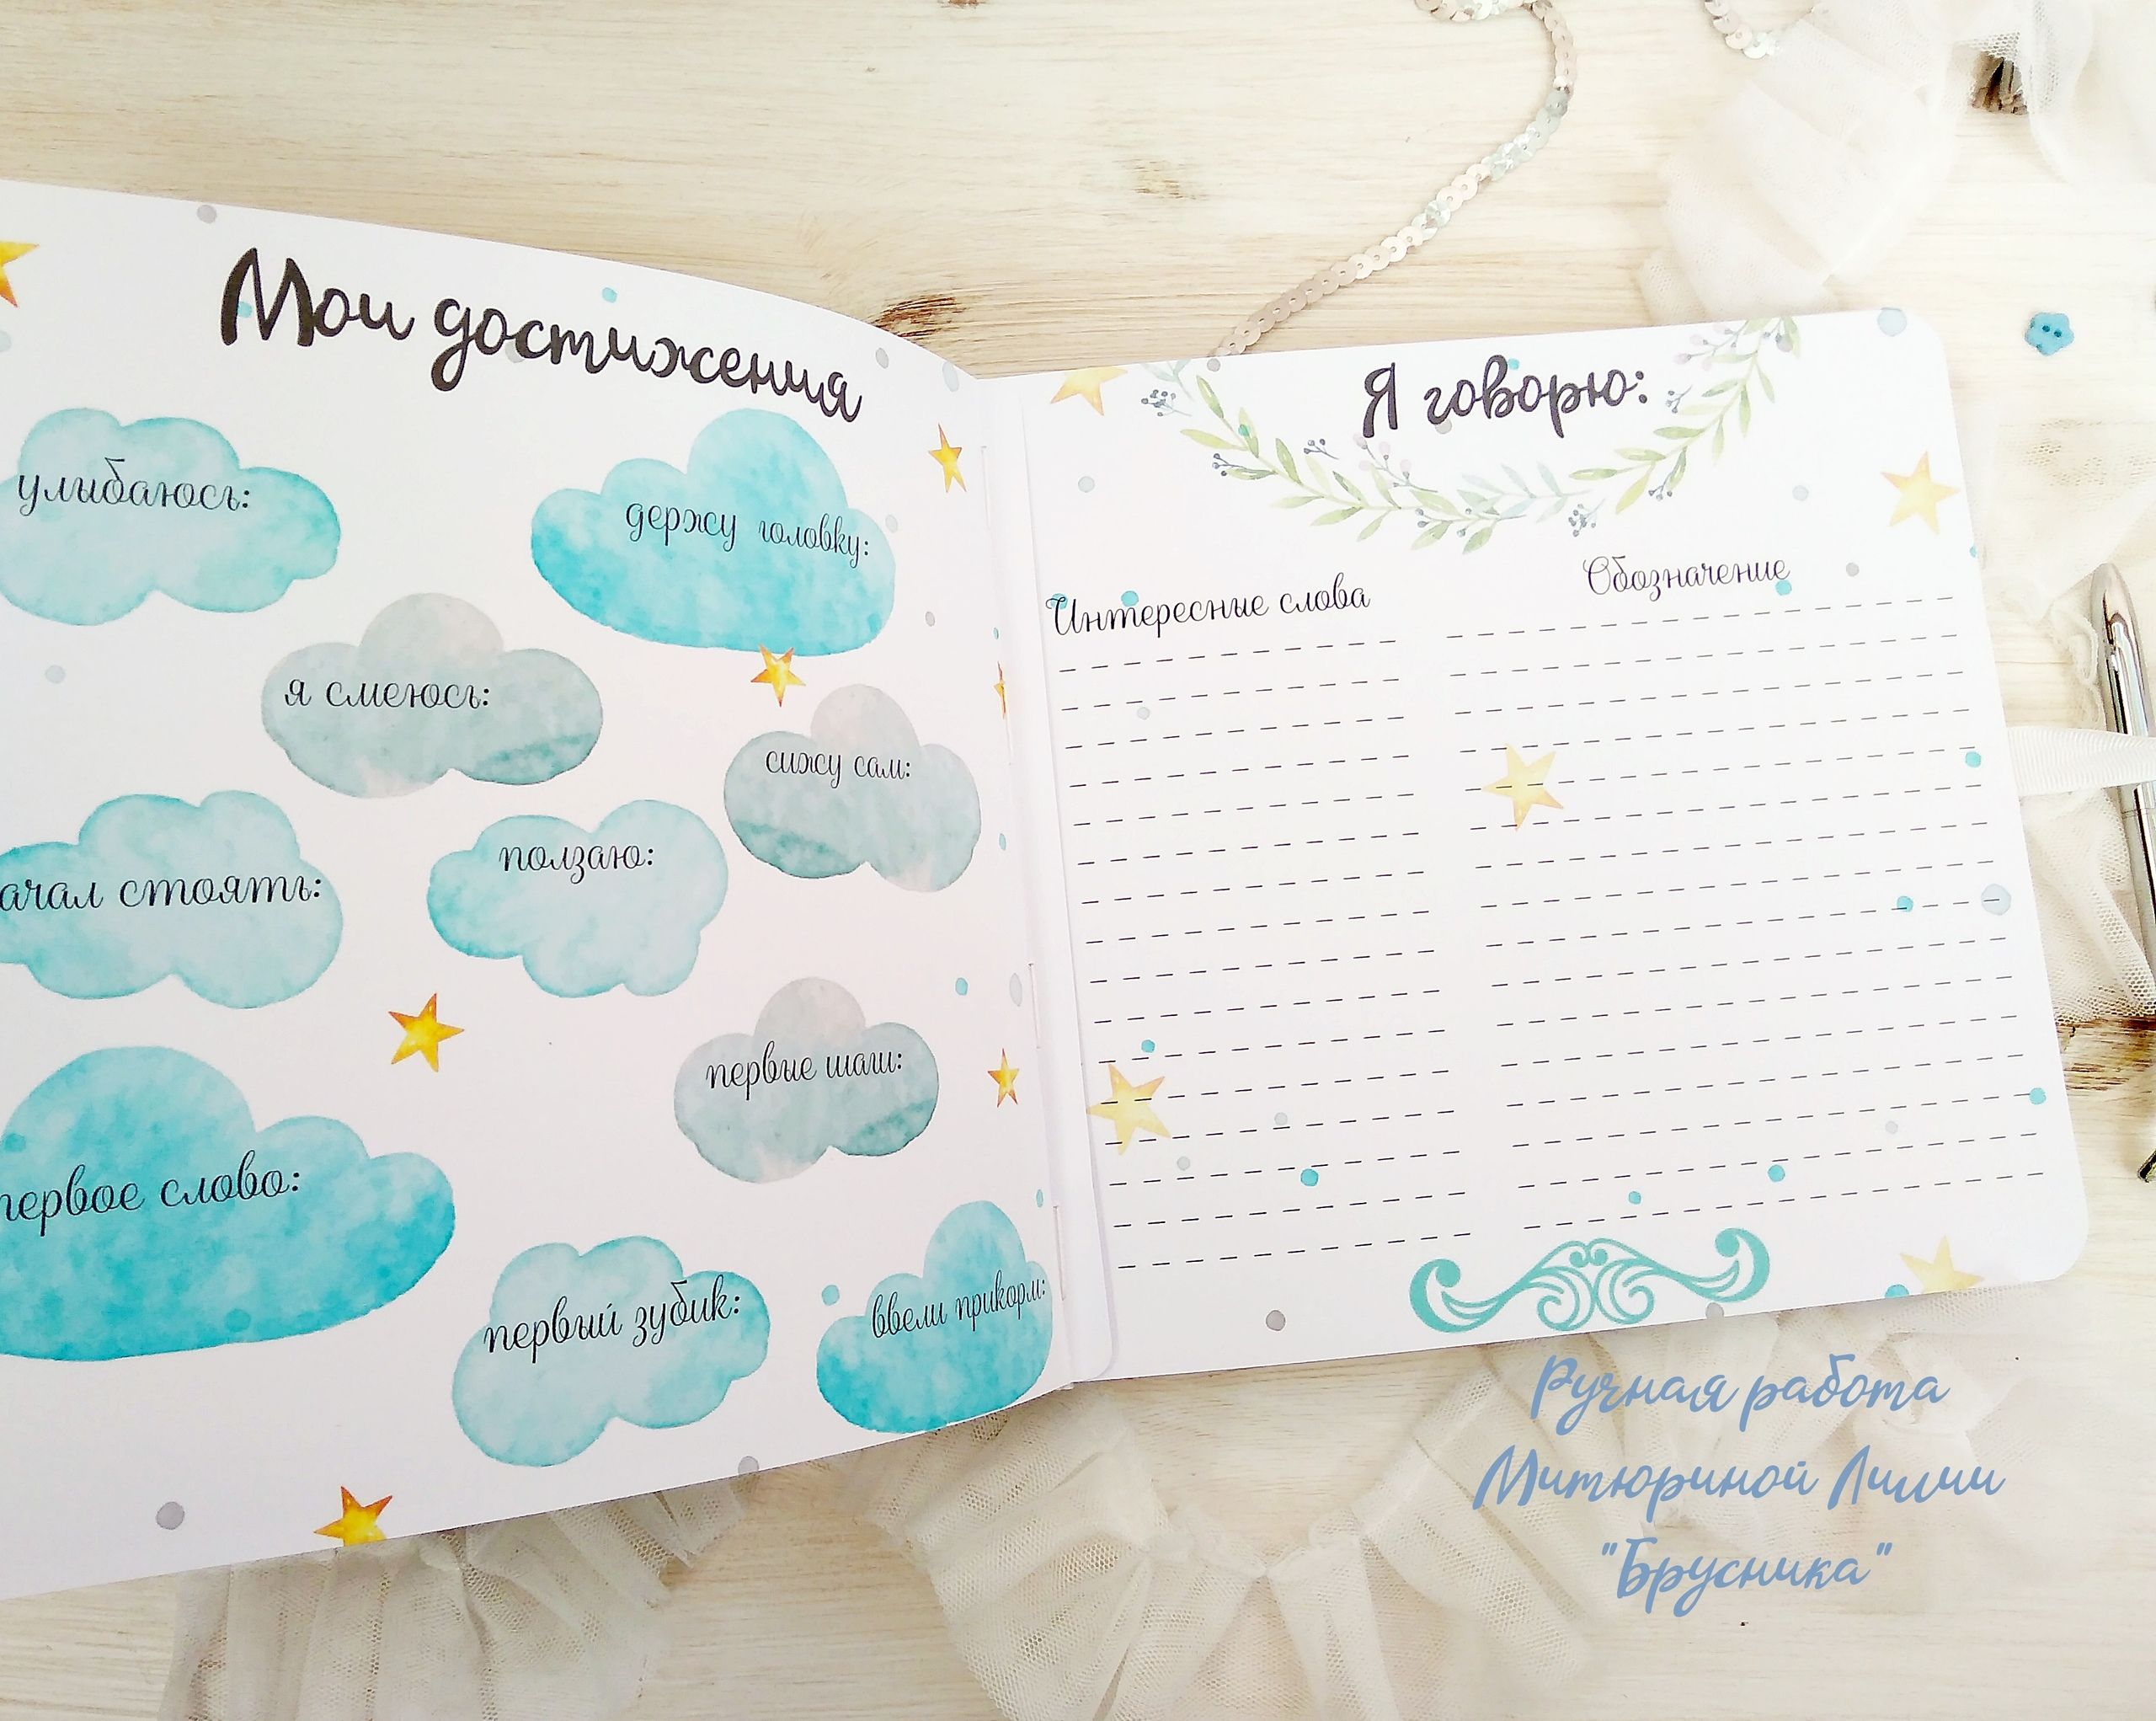 Мои достижения
улыбаюсь:
держу головку:
я смеюсь:
сижу сам:
ачал стоять:
ползаю:
первые шаги:
первое слово:
первый зубик:
ввели прикорм:
Я говорю:
Интересные слова
Обозначение
Ручная работа
Митюриной Лилии
"Брусника"